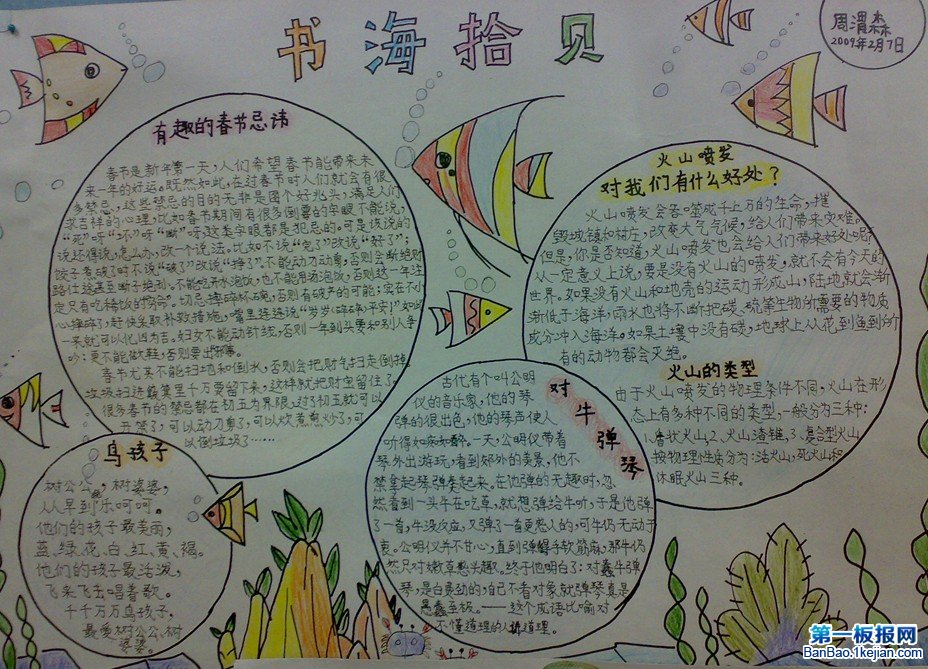 书海拾贝
周渭淼
2009年2月7日
有趣的春节忌讳
春节是新年第一天,人们希望春节能带来未
来一年的好运。既然如此,在过春节时人们就会有很
多禁忌,这些禁忌的目的无非是图个好兆头,满足人们
求吉祥的心理,比如春节期间有很多倒霉的字眼不能说,
"死"呀"坏"呀"断"呀,这类字眼都是犯忌的。可是该说的
说还得说,怎么办,改一个说法。比如不说"包了"改说"好了";
饺子煮破了时不说"破了"改说"挣了"。不能动刀动剪,否则会断绝财
定只有吃稀饭的穷命"。切忌摔碎杯碗,否则有破产的可能;实在不小
心摔碎了,赶快采取补救措施,嘴里连连说"岁岁(碎碎)平安!"如此
一来就可以化凶为吉。妇女不能动针线,否则一年到头要和别人争
吵;更不能做鞋,否则要出邪事。
春节尤其不能扫地和倒水,否则会把财气扫走倒掉。
垃圾扫进簸箕里千万要留下来,这样就把财宝留住了。
很多春节的禁忌都在初五为界限,过了初五就可以
开荤了,可以动刀剪了,可以炊煮煎炒了,可
以倒垃圾了……
火山喷发
对我们有什么好处?
火山喷发会吞噬成千上万的生命,摧
毁城镇和村庄,改变大气气候,给人们带来灾难。
但是,你是否知道,火山喷发也会给人们带来好处呢?
从一定意义上说,要是没有火山的喷发,就不会有今天的
世界。如果没有火山和地壳的运动形成山,陆地就会渐
渐低于海洋,雨水也将不断把碳、硫等生物所需要的物质
或分冲入海洋。如果土壤中没有碳,地球上从花到鱼到所
有的动物都会灭绝。
火山的类型
由于火山喷发的物理条件不同,火山在形
态上有多种不同的类型,一般分为三种:
1、盾状火山、2、火山渣锥、3、复合型火山
按物理性质分为:活火山,死火山和
休眠火山三种。
对牛弹琴
古代有个叫公明
仪的音乐家,他的琴
弹的很出色,他的琴声使人
听得如痴如醉。一天,公明仪带着
琴外出游玩,看到郊外的美景,他不
禁拿起琴弹奏起来。在他弹的无趣时,忽
然看到一头牛在吃草,就想弹给牛听,于是他弹
了一首,牛没反应,又弹了一首更悠人的,可牛仍无动于
衷。公明仪并不甘心,直到弹得手软筋麻,那牛仍
然只对嫩草感兴趣。终于他明白了:对蠢牛弹
琴,是白费劲的,自己不看对象就弹琴真是
愚蠢至极。——这个成语比喻对
不懂道理的人讲道理。
鸟孩子
树公公,树婆婆,
从早到乐呵呵。
他们的孩子最美丽,
蓝、绿、花、白、红、黄、褐。
他们的孩子最活泼,
飞来飞去唱着歌。
千千万万鸟孩子,
最爱树公公、树
婆婆。
第一板报网
BanBao.1kejian.com